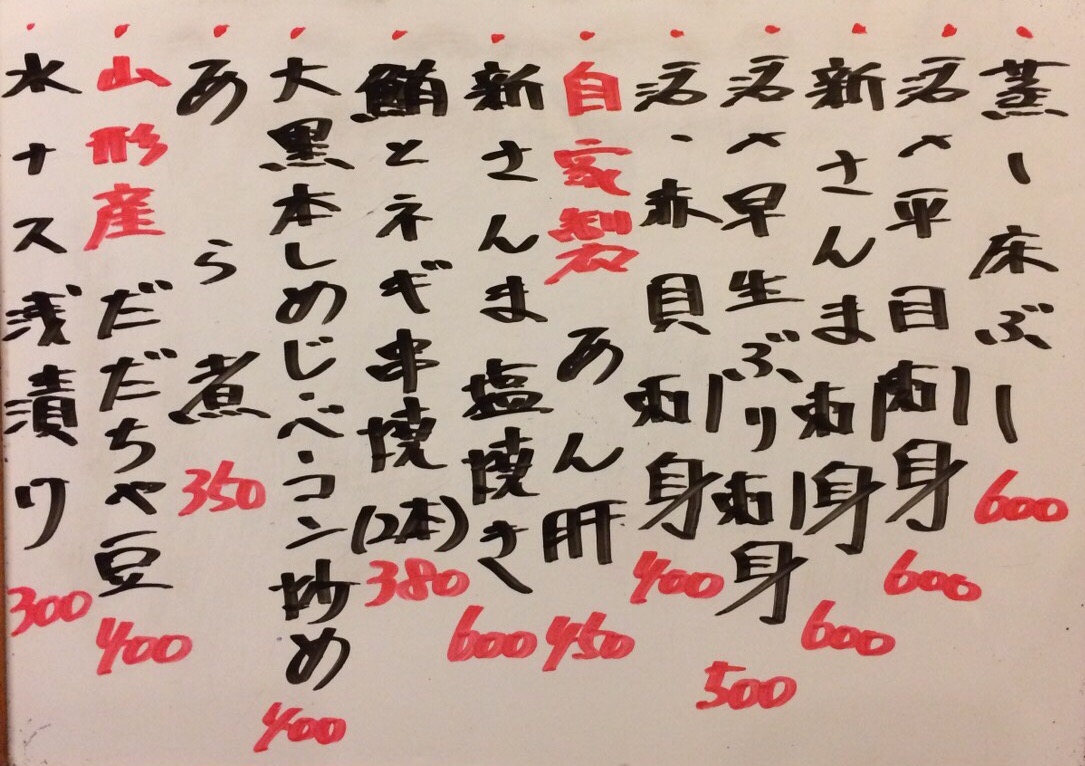 蒸し床ぶし 600
活〆平目刺身 600
新さんま刺身 600
活〆早生ぶり刺身 500
活、赤貝刺身 400
自家製 あん肝 450
新さんま塩焼き 600
鮪とネギ串焼(2本) 380
大黒本しめじ・ベーコン炒め 400
あら煮 350
山形産 だだちゃ豆 400
水ナス浅漬け 300